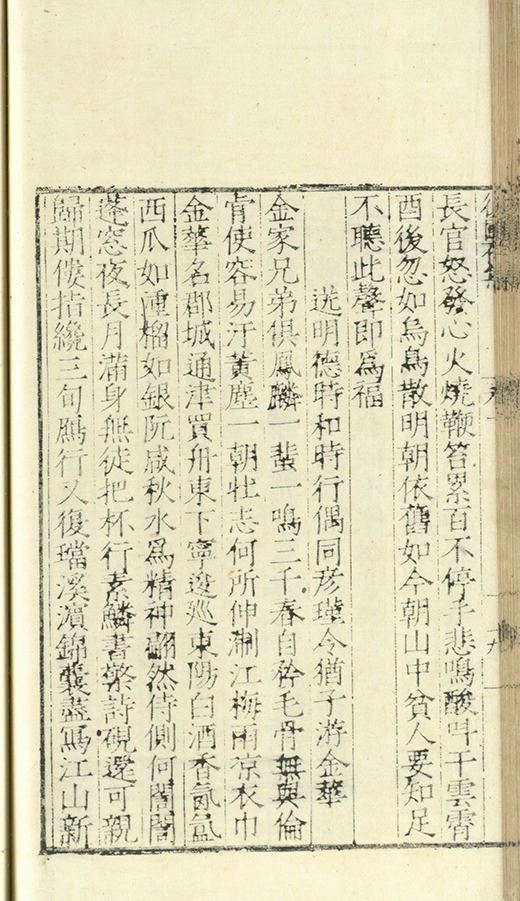 長官怒發心火燒鞭笞累百不停手悲鳴酸呌干雲霄
酉後忽如烏鳥散明朝依舊如今朝山中貧人要知足
不聽此聲即爲福
送明德時和時行偶同彦瑾令猶子游金華
金家兄弟俱鳳麟一蜚一鳴三千春自矜毛骨無與倫
肯使容易汙黄塵一朝壮志何所伸淛江梅雨凉衣巾
金華名郡城通津買舟東下寧逡廵東陽白酒香氤氲
西瓜如
榴如銀阮咸秋水爲精神翩然侍側何誾誾
蓬窓夜長月滿身無徒把杯行素鱗書檠詩硯還可親
歸期僂指纔三旬鴈行又復璫溪濵錦囊盡寫江山新